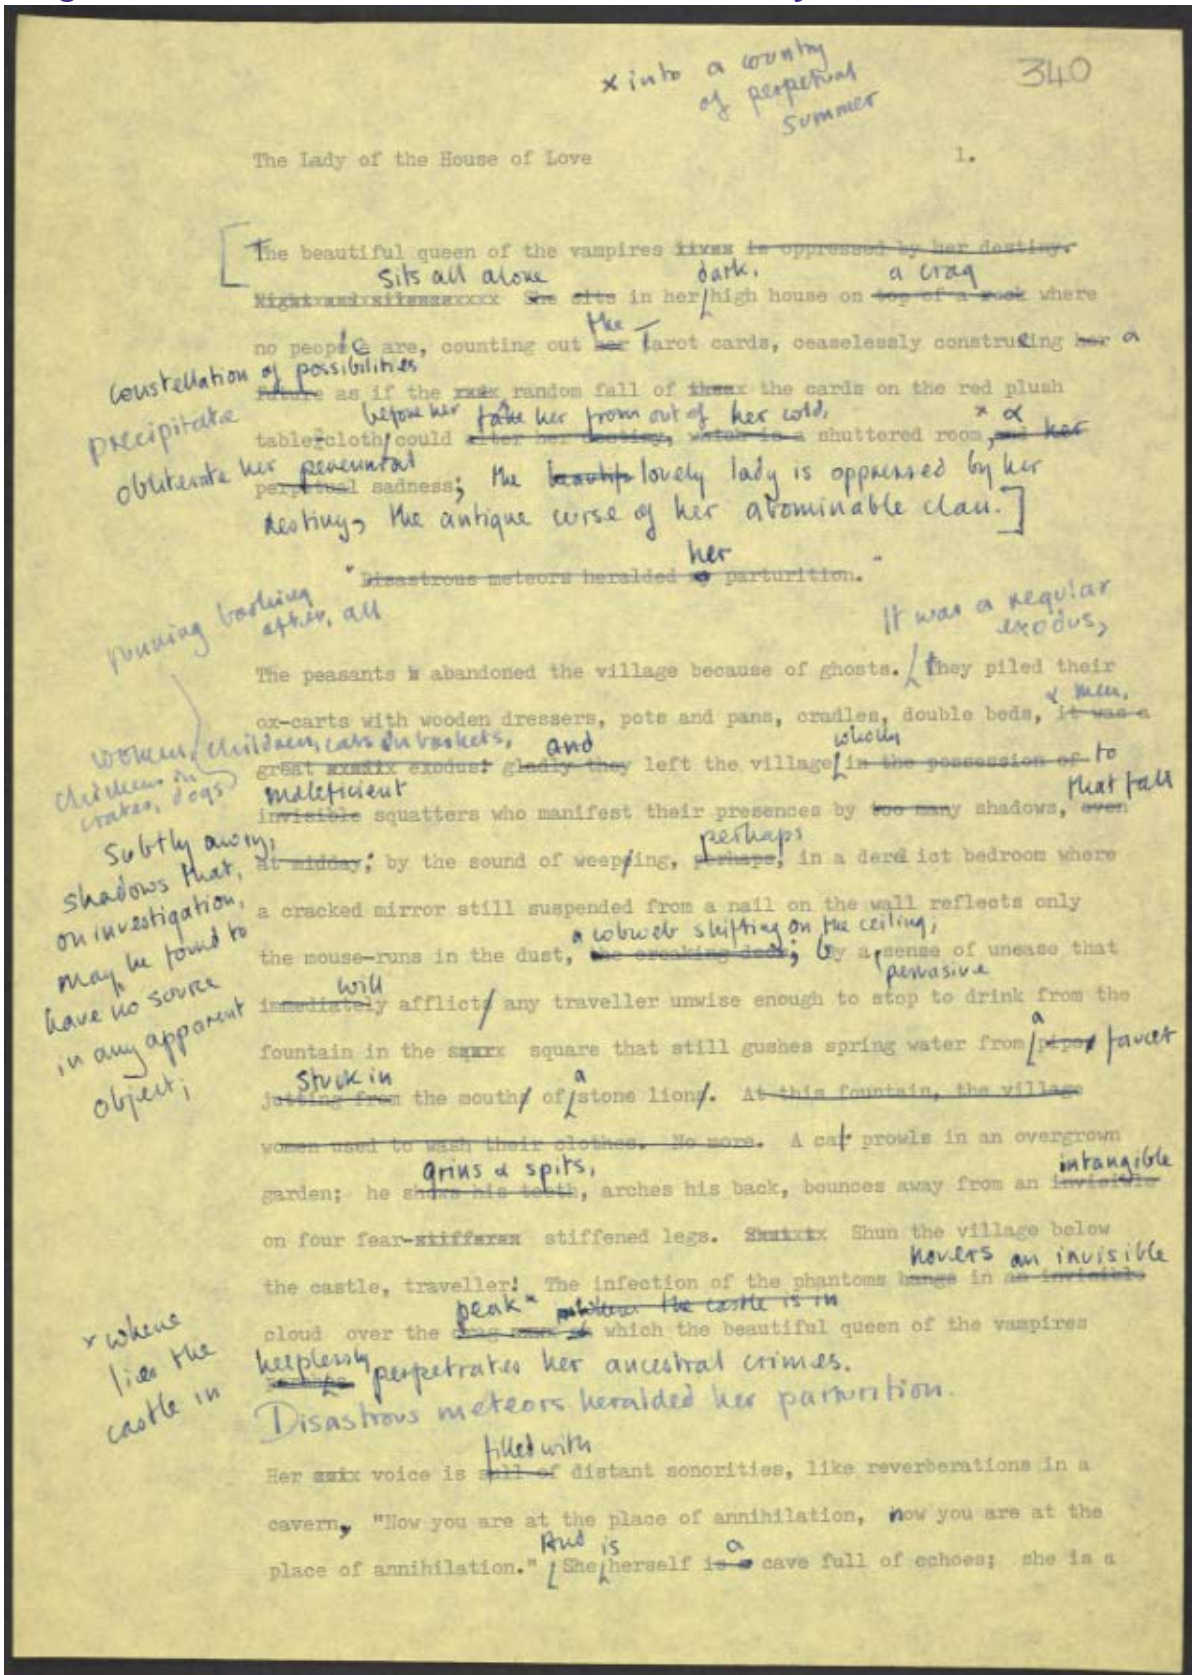 x into a country
of perpetual
summer
340
The Lady of the House of Love 1.
The beautiful queen of the vampires lives is oppressed by her destiny.
Sits all alone dark, a crag
Night and silence She sits in her high house on top of a rock where
the
no people are, counting out her Tarot cards, ceaselessly constructing her a
constellation of possibilities
future as if the random fall of these the cards on the red plush
precipitate
before her take her from out of her cold, x a
tablecloth could alter her destiny, which is a shuttered room, and her
obliterate her perennial
perpetual sadness; the beautiful lovely lady is oppressed by her
destiny, the antique curse of her abominable clan.]
her
"Disastrous meteors heralded my parturition."
running barking
after, all
It was a regular
exodus,
The peasants abandoned the village because of ghosts. they piled their
& men,
ox-carts with wooden dressers, pots and pans, cradles, double beds, it was a
women, children, cats in baskets,
and wholly
great exodus: gladly they left the village in the possession of to
chickens in
crates, dogs
maleficient that fall
invisible squatters who manifest their presences by too many shadows, even
Subtly awry,
shadows that,
on investigation,
may be found to
have no source
in any apparent
object;
perhaps
at midday; by the sound of weeping, perhaps, in a derelict bedroom where
a cracked mirror still suspended from a nail on the wall reflects only
a cobweb shifting on the ceiling;
the mouse-runs in the dust, the creaking door; by a sense of unease that
will pervasive
immediately afflicts any traveller unwise enough to stop to drink from the
a
fountain in the square that still gushes spring water from pipes faucet
stuck in a
jutting from the mouths of stone lions. At this fountain, the village
women used to wash their clothes. No more. A cat prowls in an overgrown
grins & spits, intangible
garden; he shows his teeth, arches his back, bounces away from an invisible
on four fear-stiffened legs. Shun the village below
hovers an invisible
the castle, traveller! The infection of the phantoms hangs in an invisible
peak x the castle is in
cloud over the crag which the beautiful queen of the vampires
x where
lies the
castle in
helplessly perpetrates her ancestral crimes.
Disastrous meteors heralded her parturition.
filled with
Her voice is full of distant sonorities, like reverberations in a
cavern, "Now you are at the place of annihilation, now you are at the
And is a
place of annihilation." She herself is a cave full of echoes; she is a